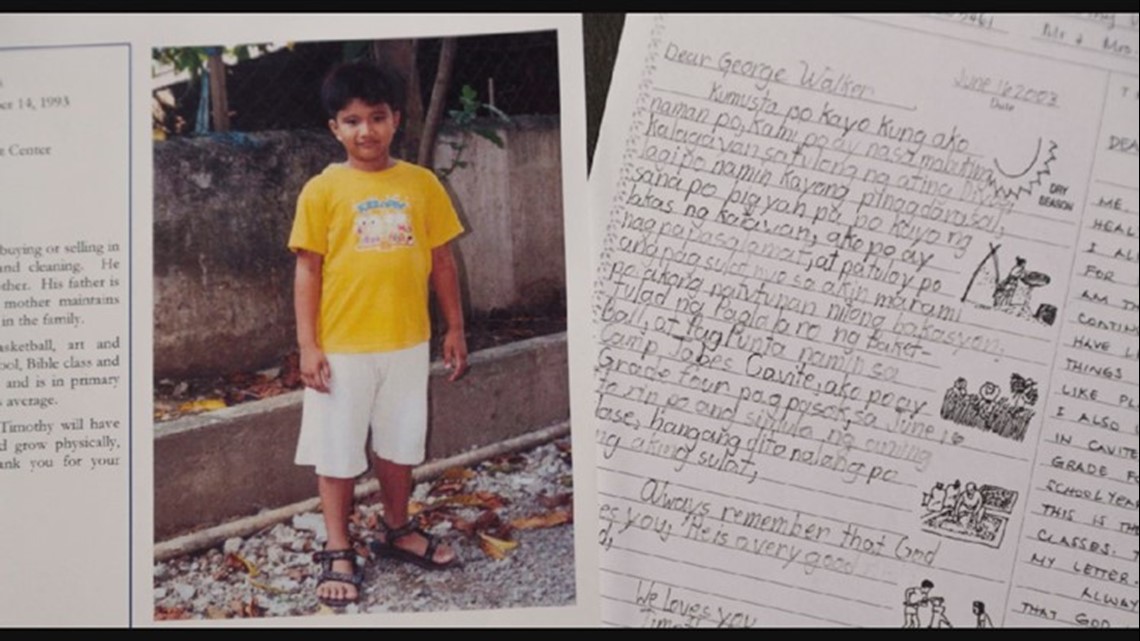 14, 1993
Center
buying or selling in
and cleaning. He
other. His father is
mother maintains
in the family.
basketball, art and
school, Bible class and
and is in primary
average.
Timothy will have
grow physically,
thank you for your
Mr + Mrs
Dear George Walker
June 16 2003
Date
Kumusta po kayo kung ako
naman po, kami po ay nasa mabuting
kalagayan sa tulong ng ating
lagi po namin kayong pinagdarasal,
sana po bigyan pa po kayo ng
lakas ng katawan, ako po ay
nagpapasalamat, at patuloy po
ang pag sulat nyo sa akin marami
pa akong natutunan nitong bakasyon,
tulad ng Paglalaro ng Basket-
Ball, at Pag Punta namin sa
Camp Jabes Cavite, ako po ay
Grade four pag pasok, sa June 16
rin po ang simula ng aming
klase, hangang dito nalang po
ang aking sulat,
Always remember that God
loves you, He is a very good
We loves you
DRY
SEASON
DEAR
ME
I
FOR
AM
HAVE
THINGS
LIKE
I ALSO
IN CAVITE
GRADE
SCHOOL YEAR
THIS IS
CLASSES.
MY LETTER
THAT GOD